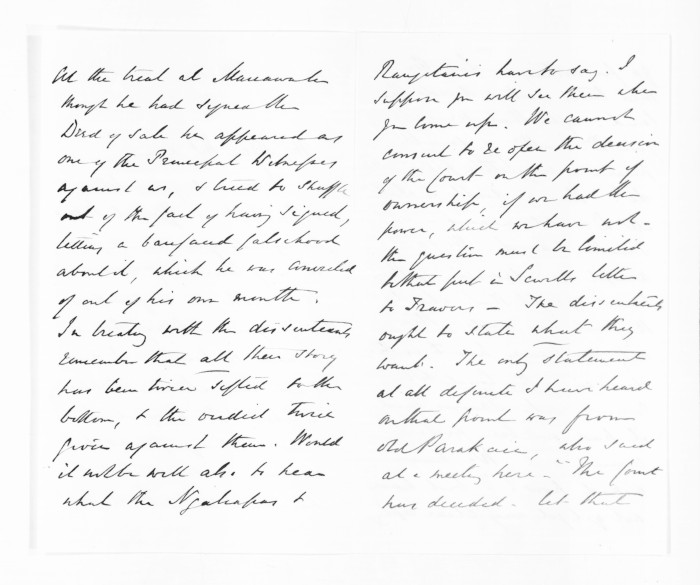 At the trial at Manawatu
though he had signed the
Deed of Sale he appeared as
one of the Principal Witnesses
against us, & tried to shuffle
out of the fact of having signed,
telling a barefaced falsehood
about it, which he was convicted
of out of his own mouth.
In treating with the dissentients
remember that all their story
has been twice sifted to the
bottom, & the verdict twice
given against them. Would
it not be well also to hear
what the Ngatiapas &
Rangitanis have to say. I
suppose you will see them when
you come up. We cannot
consent to re open the decision
of the Court on the point of
ownership, if we had the
power, which we have not -
the question must be limited
to that put in letter
to Travers - The dissentients
ought to state what they
want. The only statement
at all definite I have heard
on that point was from
old Parakaia, who said
at a meeting here - "The Court
has decided - let that